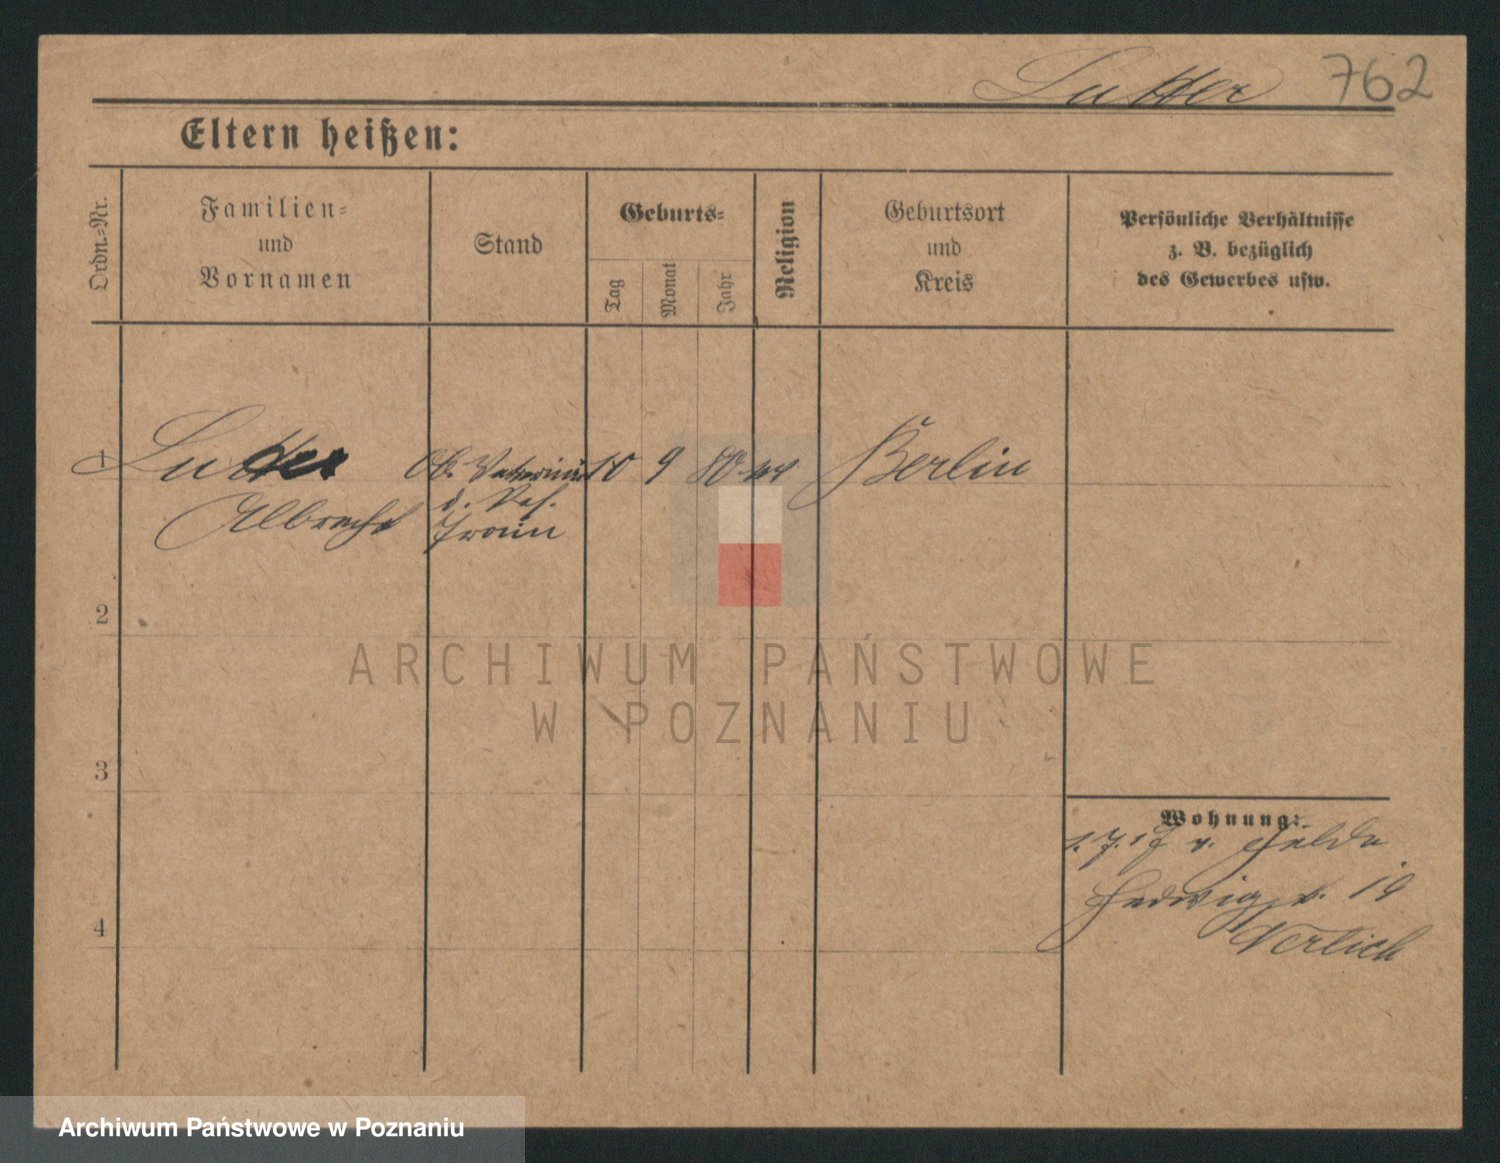 Lutter 762
Eltern heißen:
Ordn.-Nr.
Familien-
und
Vornamen
Stand
Geburts-
Tag
Monat
Jahr
Religion
Geburtsort
und
Kreis
Persönliche Verhältnisse
z. B. bezüglich
des Gewerbes usw.
1
Lutter
Albrecht
Ob. Veterinär
d. Res.
Train
10 9 80 ev
Berlin
2
ARCHIWUM PAŃSTWOWE
W POZNANIU
3
Wohnung:
v.
Hedwigstr. 19
4
Archiwum Państwowe w Poznaniu